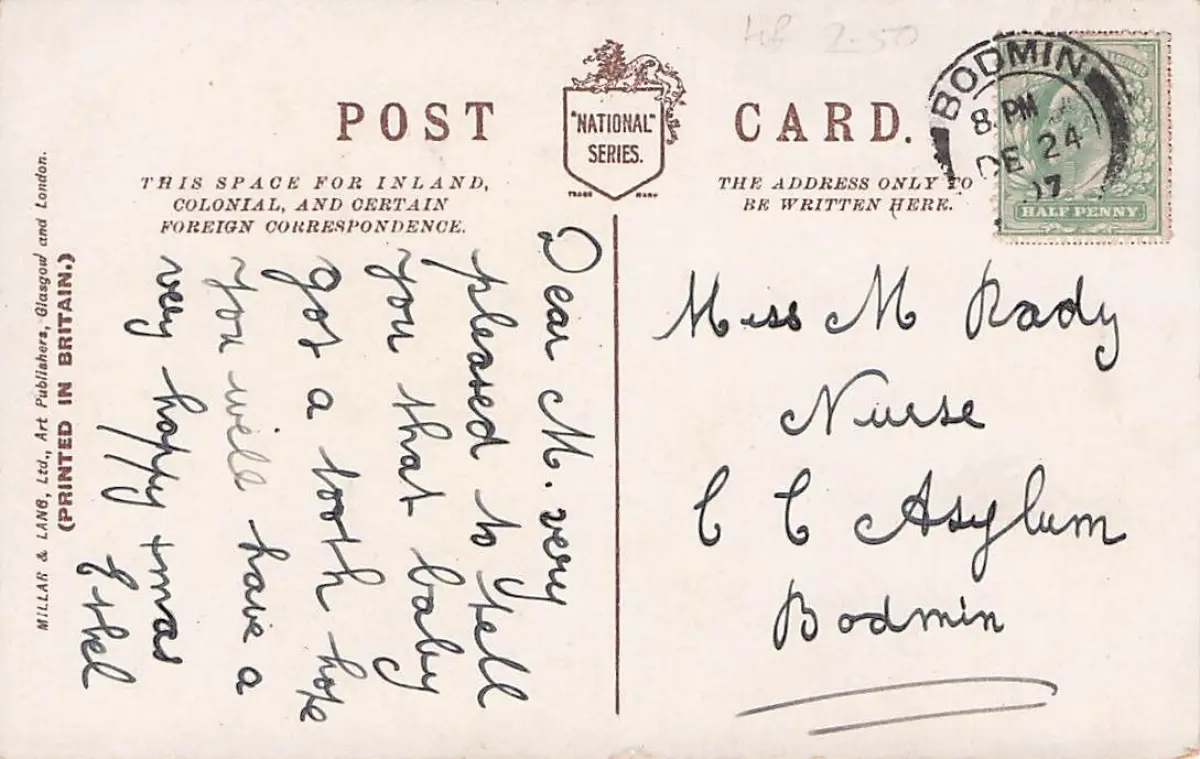 HB 2-50
POST CARD.
"NATIONAL"
SERIES.
TRADE MARK
THIS SPACE FOR INLAND,
COLONIAL, AND CERTAIN
FOREIGN CORRESPONDENCE.
THE ADDRESS ONLY TO
BE WRITTEN HERE.
BODMIN
8. PM
DE 24
07
HALF PENNY
MILLAR & LANG, Ltd., Art Publishers, Glasgow and London.
(PRINTED IN BRITAIN.)
Dear M. very
pleased to tell
you that baby
got a tooth hope
you will have a
very happy xmas
Ethel
Miss M Rady
Nurse
C C Asylum
Bodmin